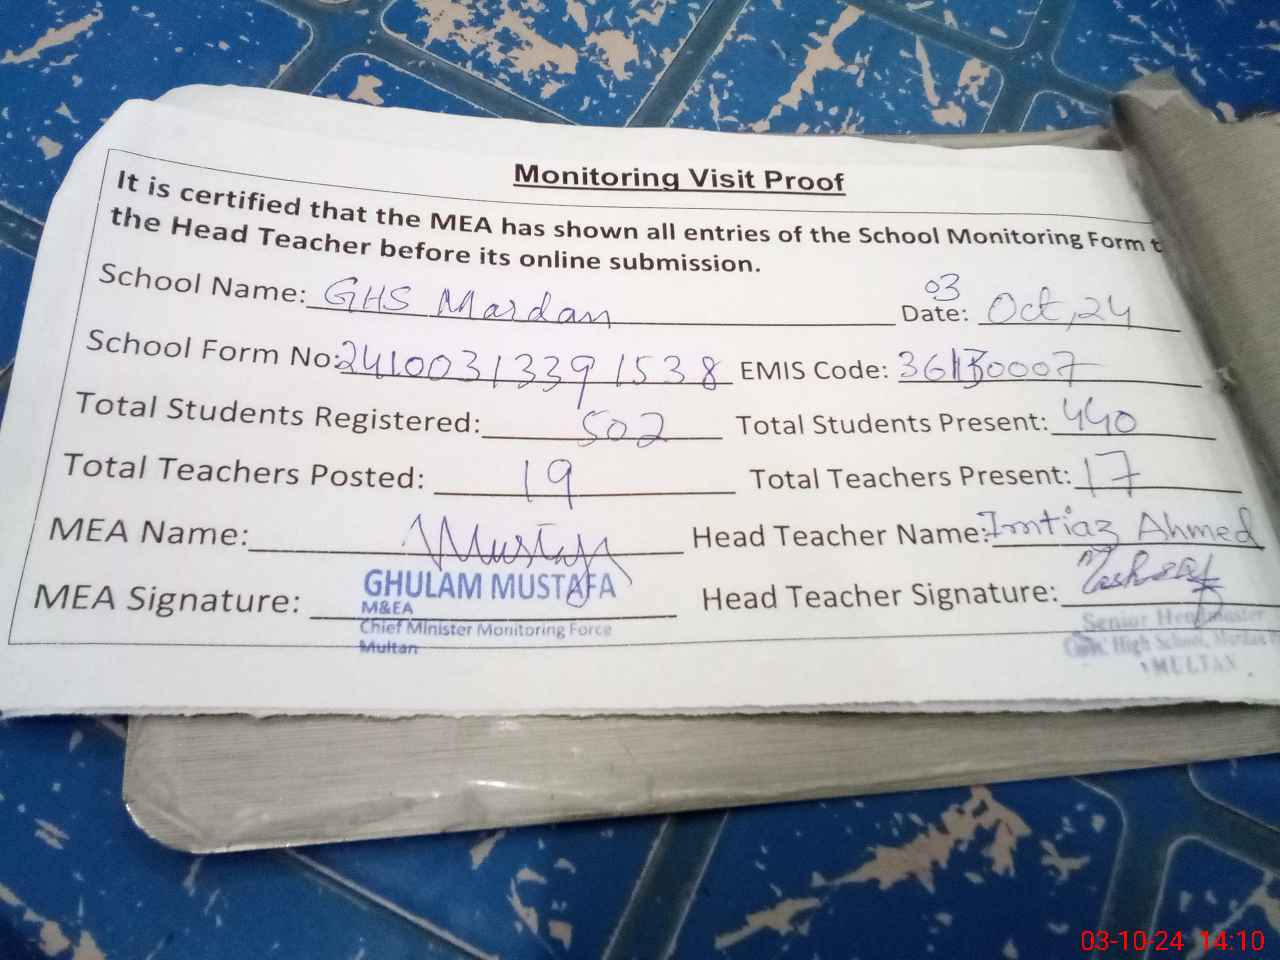 Monitoring Visit Proof
It is certified that the MEA has shown all entries of the School Monitoring Form t
the Head Teacher before its online submission.
School Name: GHS Mardan Date: 03 Oct, 24
School Form No: 24100313391538 EMIS Code:
Total Students Registered: 502 Total Students Present: 440
Total Teachers Posted: 19 Total Teachers Present: 17
MEA Name: Mustafa Head Teacher Name: Imtiaz Ahmed
MEA Signature: Head Teacher Signature:
GHULAM MUSTAFA
M&EA
Chief Minister Monitoring Force
Multan
Senior Headmaster
Govt. High School, Mardan
MULTAN
03-10-24 14:10